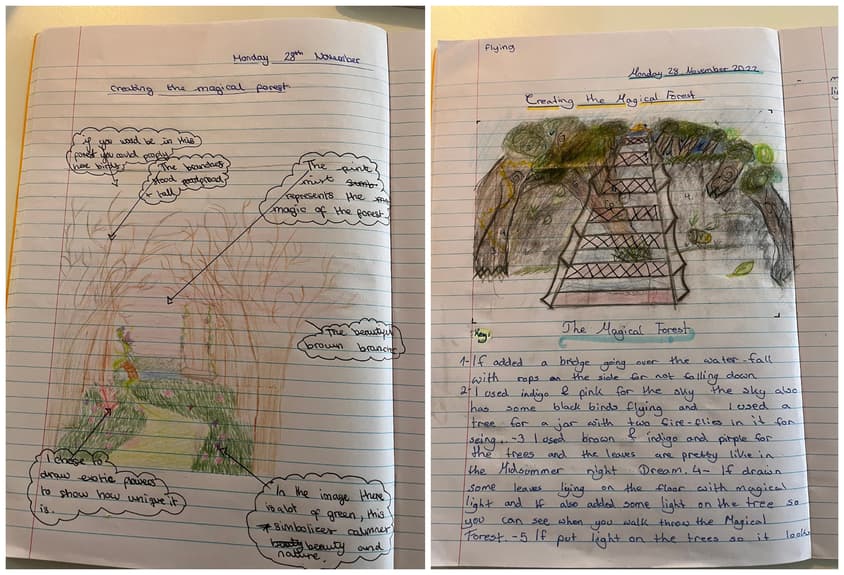 Monday 28th November
Creating the magical forest
if you would be in this
forest you could
hear birds!
The branches
stood
+ tall
The pink
mist
represents the
magic of the forest
The
brown
I chose to
draw exotic flowers
to show how unique it
is.
In the image there
is a lot of green, this
calmness
beauty and
nature.
Flying
Monday 28 November 2022
Creating the Magical Forest
Key:
The Magical Forest
1- If added a bridge going over the water-fall
with rops on the side for not falling down
2- I used indigo & pink for the sky the sky also
has some black birds flying and I used a
tree for a jar with two fire-flies in it for
seing.. -3 I used brown & indigo and pirple for
the trees and the leaves are pretty like in
the Midsommer night Dream. 4- If drawn
some leaves lying on the floor with magical
light and If also added some light on the tree so
you can see when you walk throw the Magical
Forest. -5 If put light on the trees so it looks